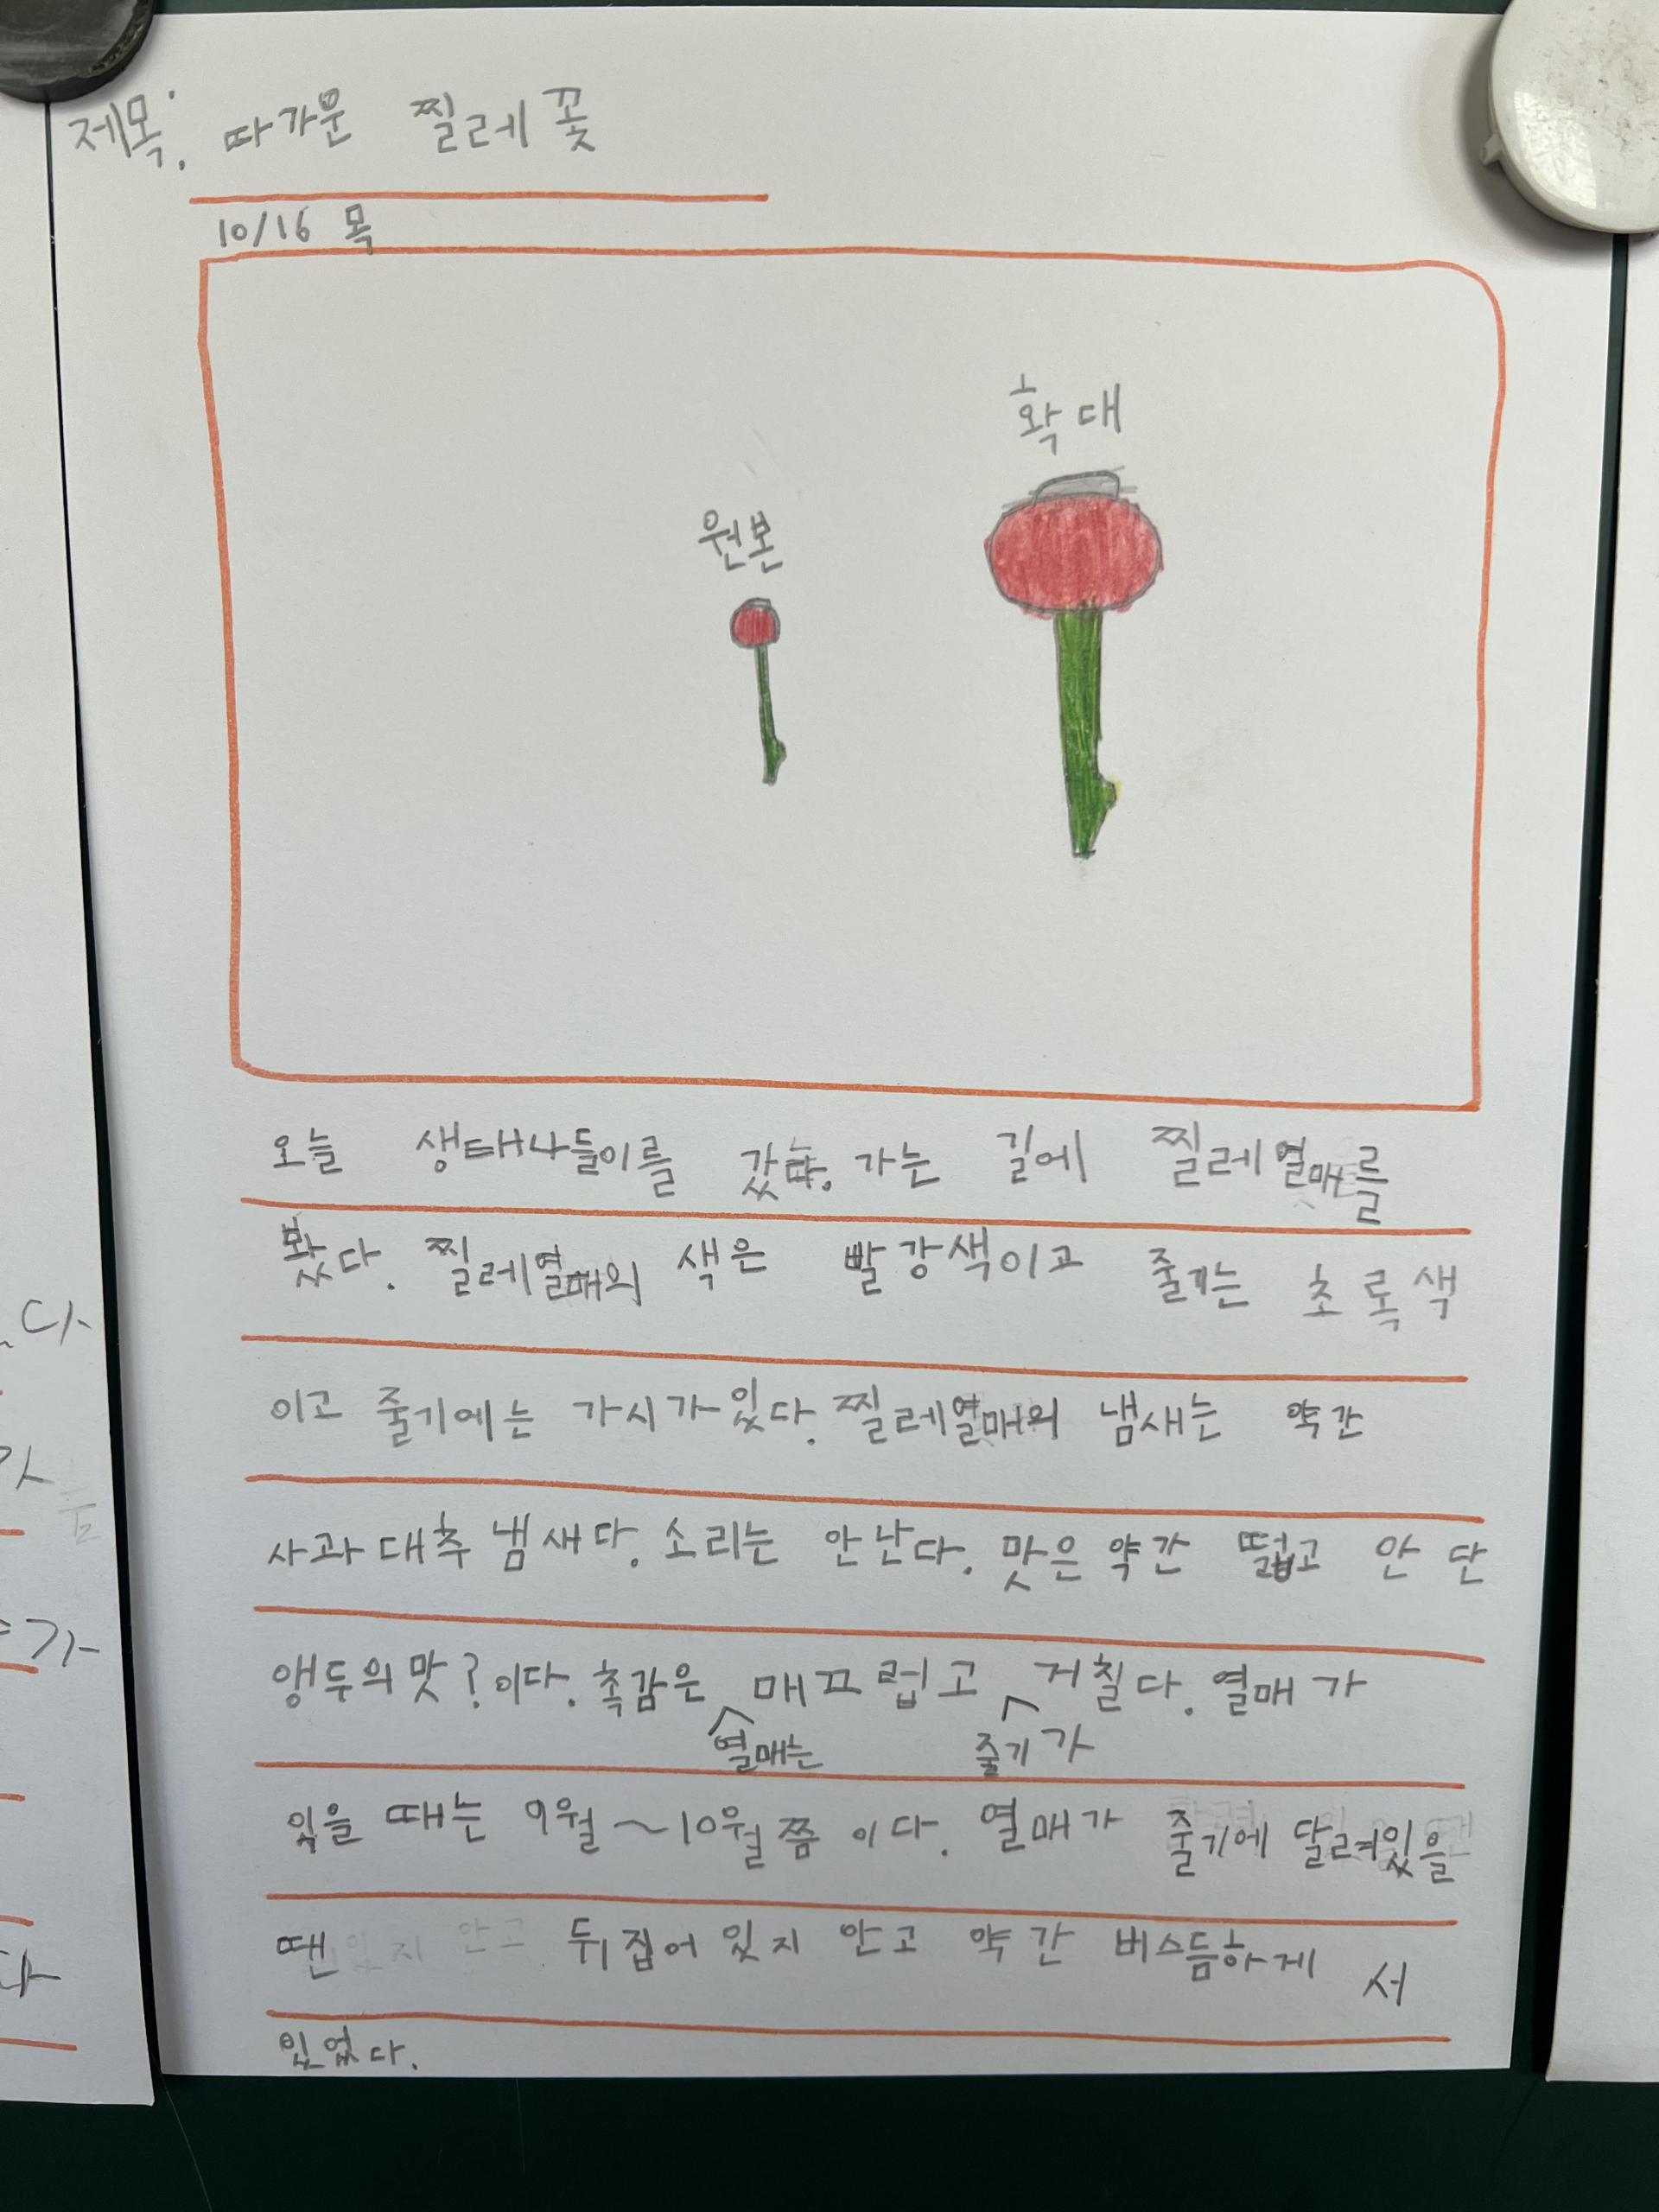 제목: 따가운 찔레꽃
10/16 목
확대
원본
오늘 생태나들이를 갔다. 가는 길에 찔레열매를
봤다. 찔레열매의 색은 빨강색이고 줄기는 초록색
이고 줄기에는 가시가있다. 찔레열매의 냄새는 약간
사과대추 냄새다. 소리는 안난다. 맛은 약간 떫고 안 단
앵두의 맛?이다. 촉감은 열매는 매끄럽고 줄기가 거칠다. 열매가
있을 때는 9월~10월쯤 이다. 열매가 줄기에 달려있을
땐 뒤집어 있지 안고 약간 비스듬하게 서
있었다.